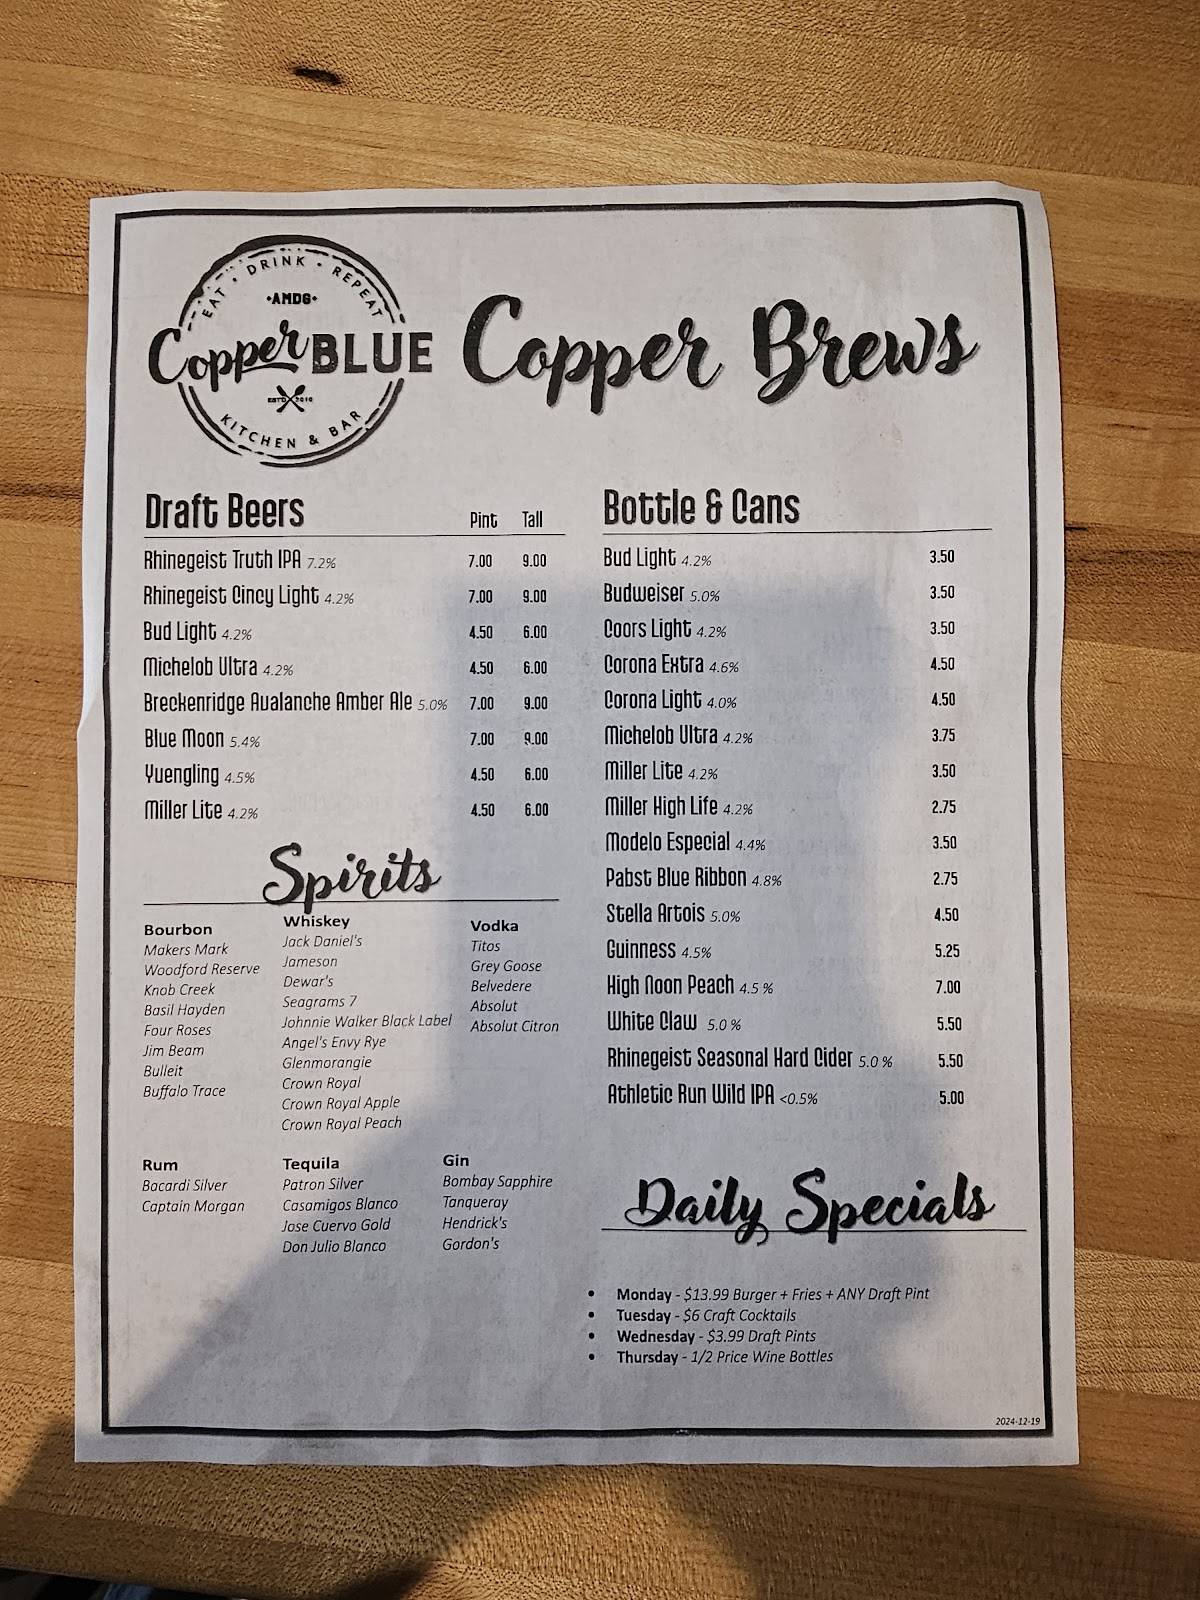 EAT • DRINK • REPEAT
•AMDG•
Copper BLUE
ESTD 2010
KITCHEN & BAR
Copper Brews
Draft Beers Pint Tall
Rhinegeist Truth IPA 7.2% 7.00 9.00
Rhinegeist Cincy Light 4.2% 7.00 9.00
Bud Light 4.2% 4.50 6.00
Michelob Ultra 4.2% 4.50 6.00
Breckenridge Avalanche Amber Ale 5.0% 7.00 9.00
Blue Moon 5.4% 7.00 9.00
Yuengling 4.5% 4.50 6.00
Miller Lite 4.2% 4.50 6.00
Spirits
Bourbon
Makers Mark
Woodford Reserve
Knob Creek
Basil Hayden
Four Roses
Jim Beam
Bulleit
Buffalo Trace
Whiskey
Jack Daniel's
Jameson
Dewar's
Seagrams 7
Johnnie Walker Black Label
Angel's Envy Rye
Glenmorangie
Crown Royal
Crown Royal Apple
Crown Royal Peach
Vodka
Titos
Grey Goose
Belvedere
Absolut
Absolut Citron
Rum
Bacardi Silver
Captain Morgan
Tequila
Patron Silver
Casamigos Blanco
Jose Cuervo Gold
Don Julio Blanco
Gin
Bombay Sapphire
Tanqueray
Hendrick's
Gordon's
Bottle & Cans
Bud Light 4.2% 3.50
Budweiser 5.0% 3.50
Coors Light 4.2% 3.50
Corona Extra 4.6% 4.50
Corona Light 4.0% 4.50
Michelob Ultra 4.2% 3.75
Miller Lite 4.2% 3.50
Miller High Life 4.2% 2.75
Modelo Especial 4.4% 3.50
Pabst Blue Ribbon 4.8% 2.75
Stella Artois 5.0% 4.50
Guinness 4.5% 5.25
High Noon Peach 4.5 % 7.00
White Claw 5.0 % 5.50
Rhinegeist Seasonal Hard Cider 5.0 % 5.50
Athletic Run Wild IPA <0.5% 5.00
Daily Specials
• Monday - $13.99 Burger + Fries + ANY Draft Pint
• Tuesday - $6 Craft Cocktails
• Wednesday - $3.99 Draft Pints
• Thursday - 1/2 Price Wine Bottles
2024-12-19